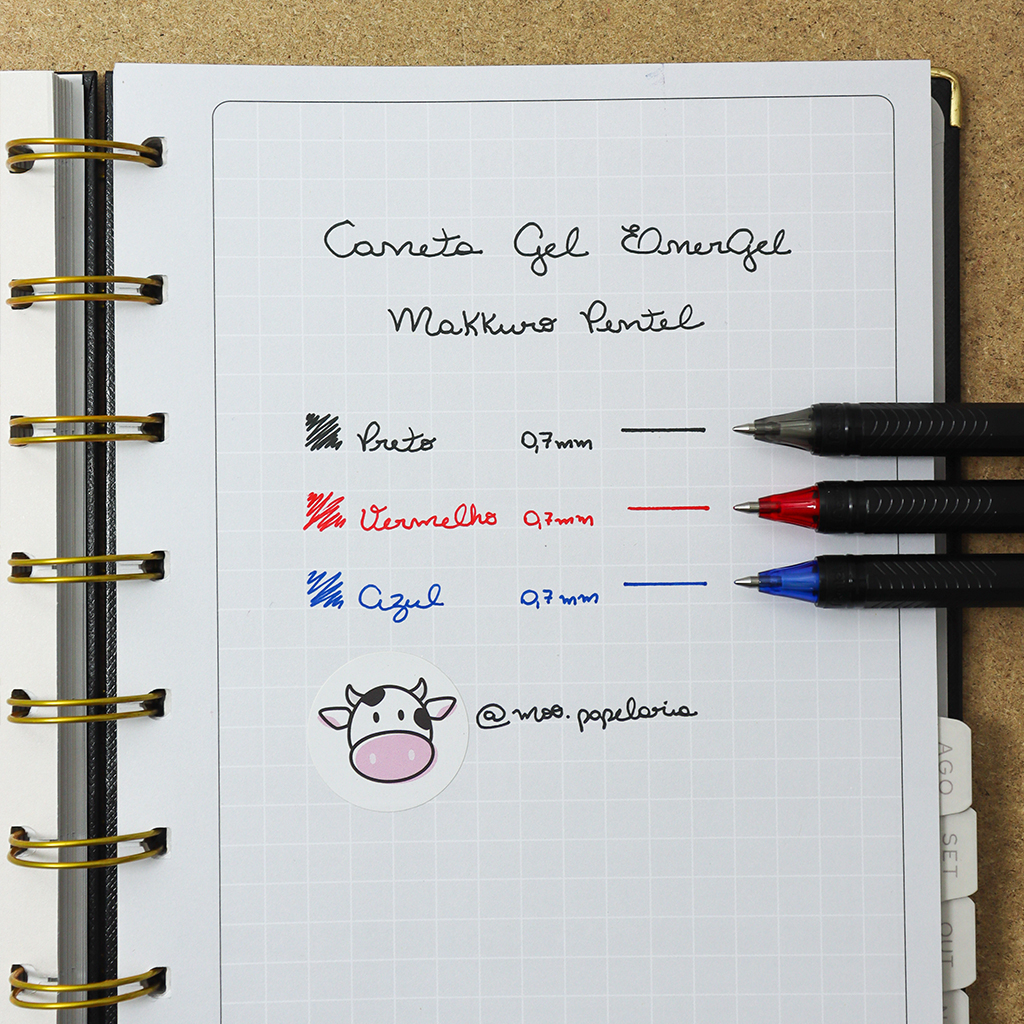 Caneta Gel EnerGel
Makkuro Pentel
Preto 0,7mm
Vermelho 0,7mm
Azul 0,7mm
@moo.papelaria
AGO
SET
OUT